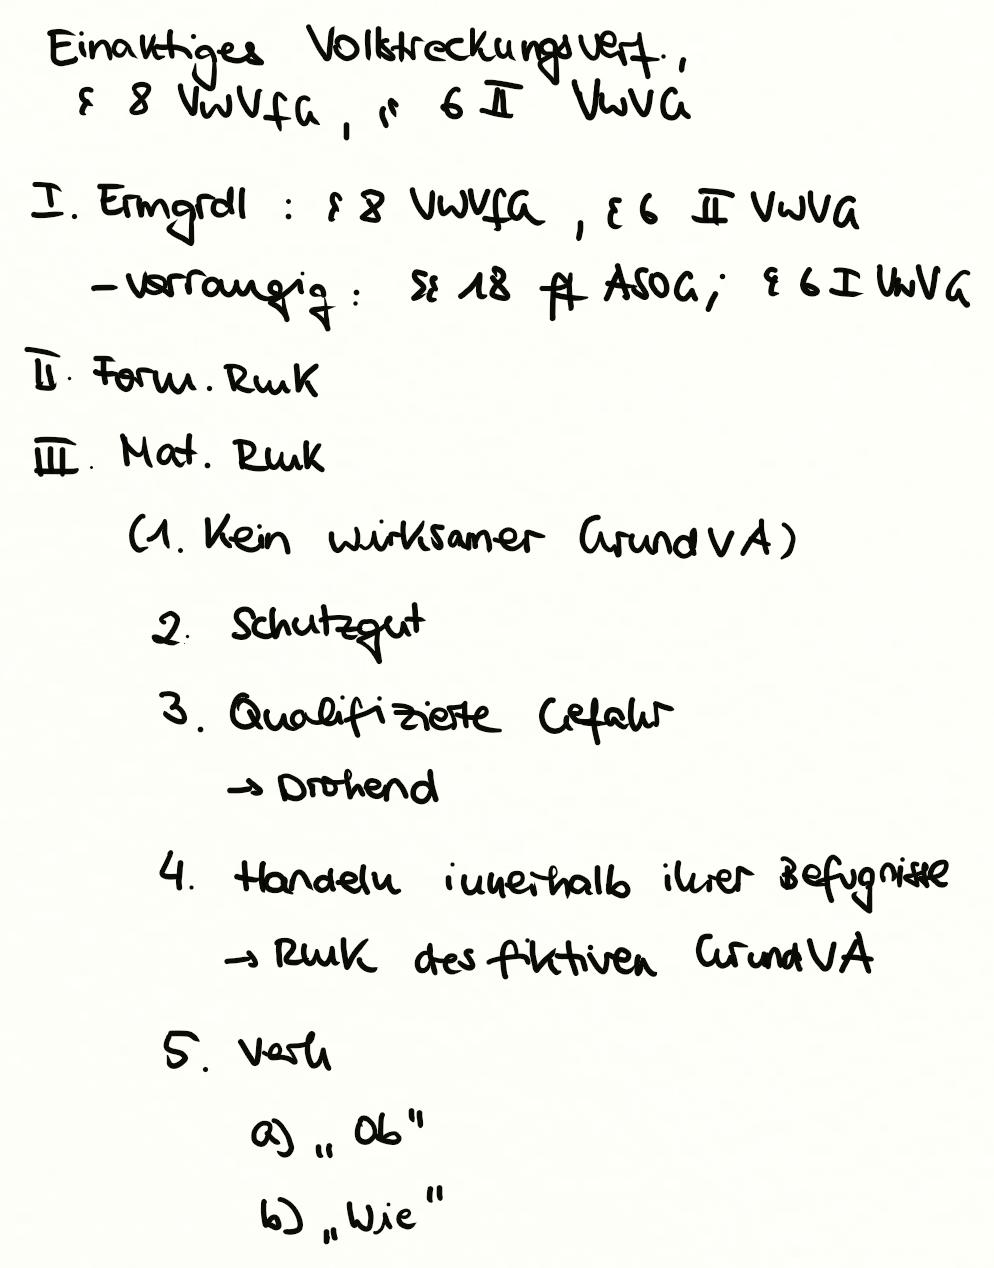 Einaktiges Vollstreckungsverf.,
§ 8 VwVfG, " 6 II VwVG
I. Ermgrdl : § 8 VwVfG, § 6 II VwVG
- vorrangig : §§ 18 ff ASOG; § 6 I VwVG
II. Form. RmK
III. Mat. RmK
(1. Kein wirksamer GrundVA)
2. Schutzgut
3. Qualifizierte Gefahr
→ Drohend
4. Handeln innerhalb ihrer Befugnisse
→ RmK des fiktiven GrundVA
5. Verh
a) „Ob"
b) „Wie"